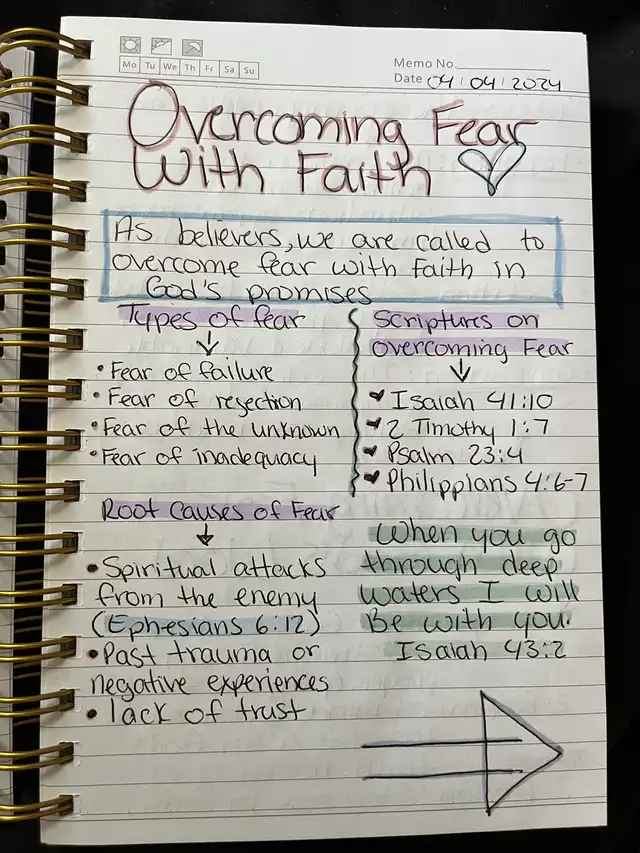 Mo Tu We Th Fr Sa Su
Memo No.
Date 04/04/2024
Overcoming Fear
With Faith
As believers, we are called to
overcome fear with faith in
God's promises
Types of fear
• Fear of failure
• Fear of rejection
• Fear of the unknown
• Fear of inadequacy
Scriptures on
overcoming Fear
Isaiah 41:10
2 Timothy 1:7
Psalm 23:4
Philippians 4:6-7
Root Causes of Fear
• Spiritual attacks
from the enemy
(Ephesians 6:12)
• Past trauma or
negative experiences
• lack of trust
When you go
through deep
waters I will
Be with you.
Isaiah 43:2